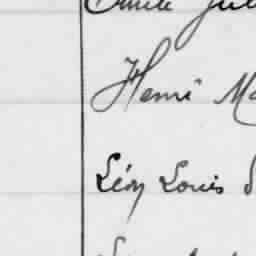 Emile Jul
Henri Ma
Léon Louis